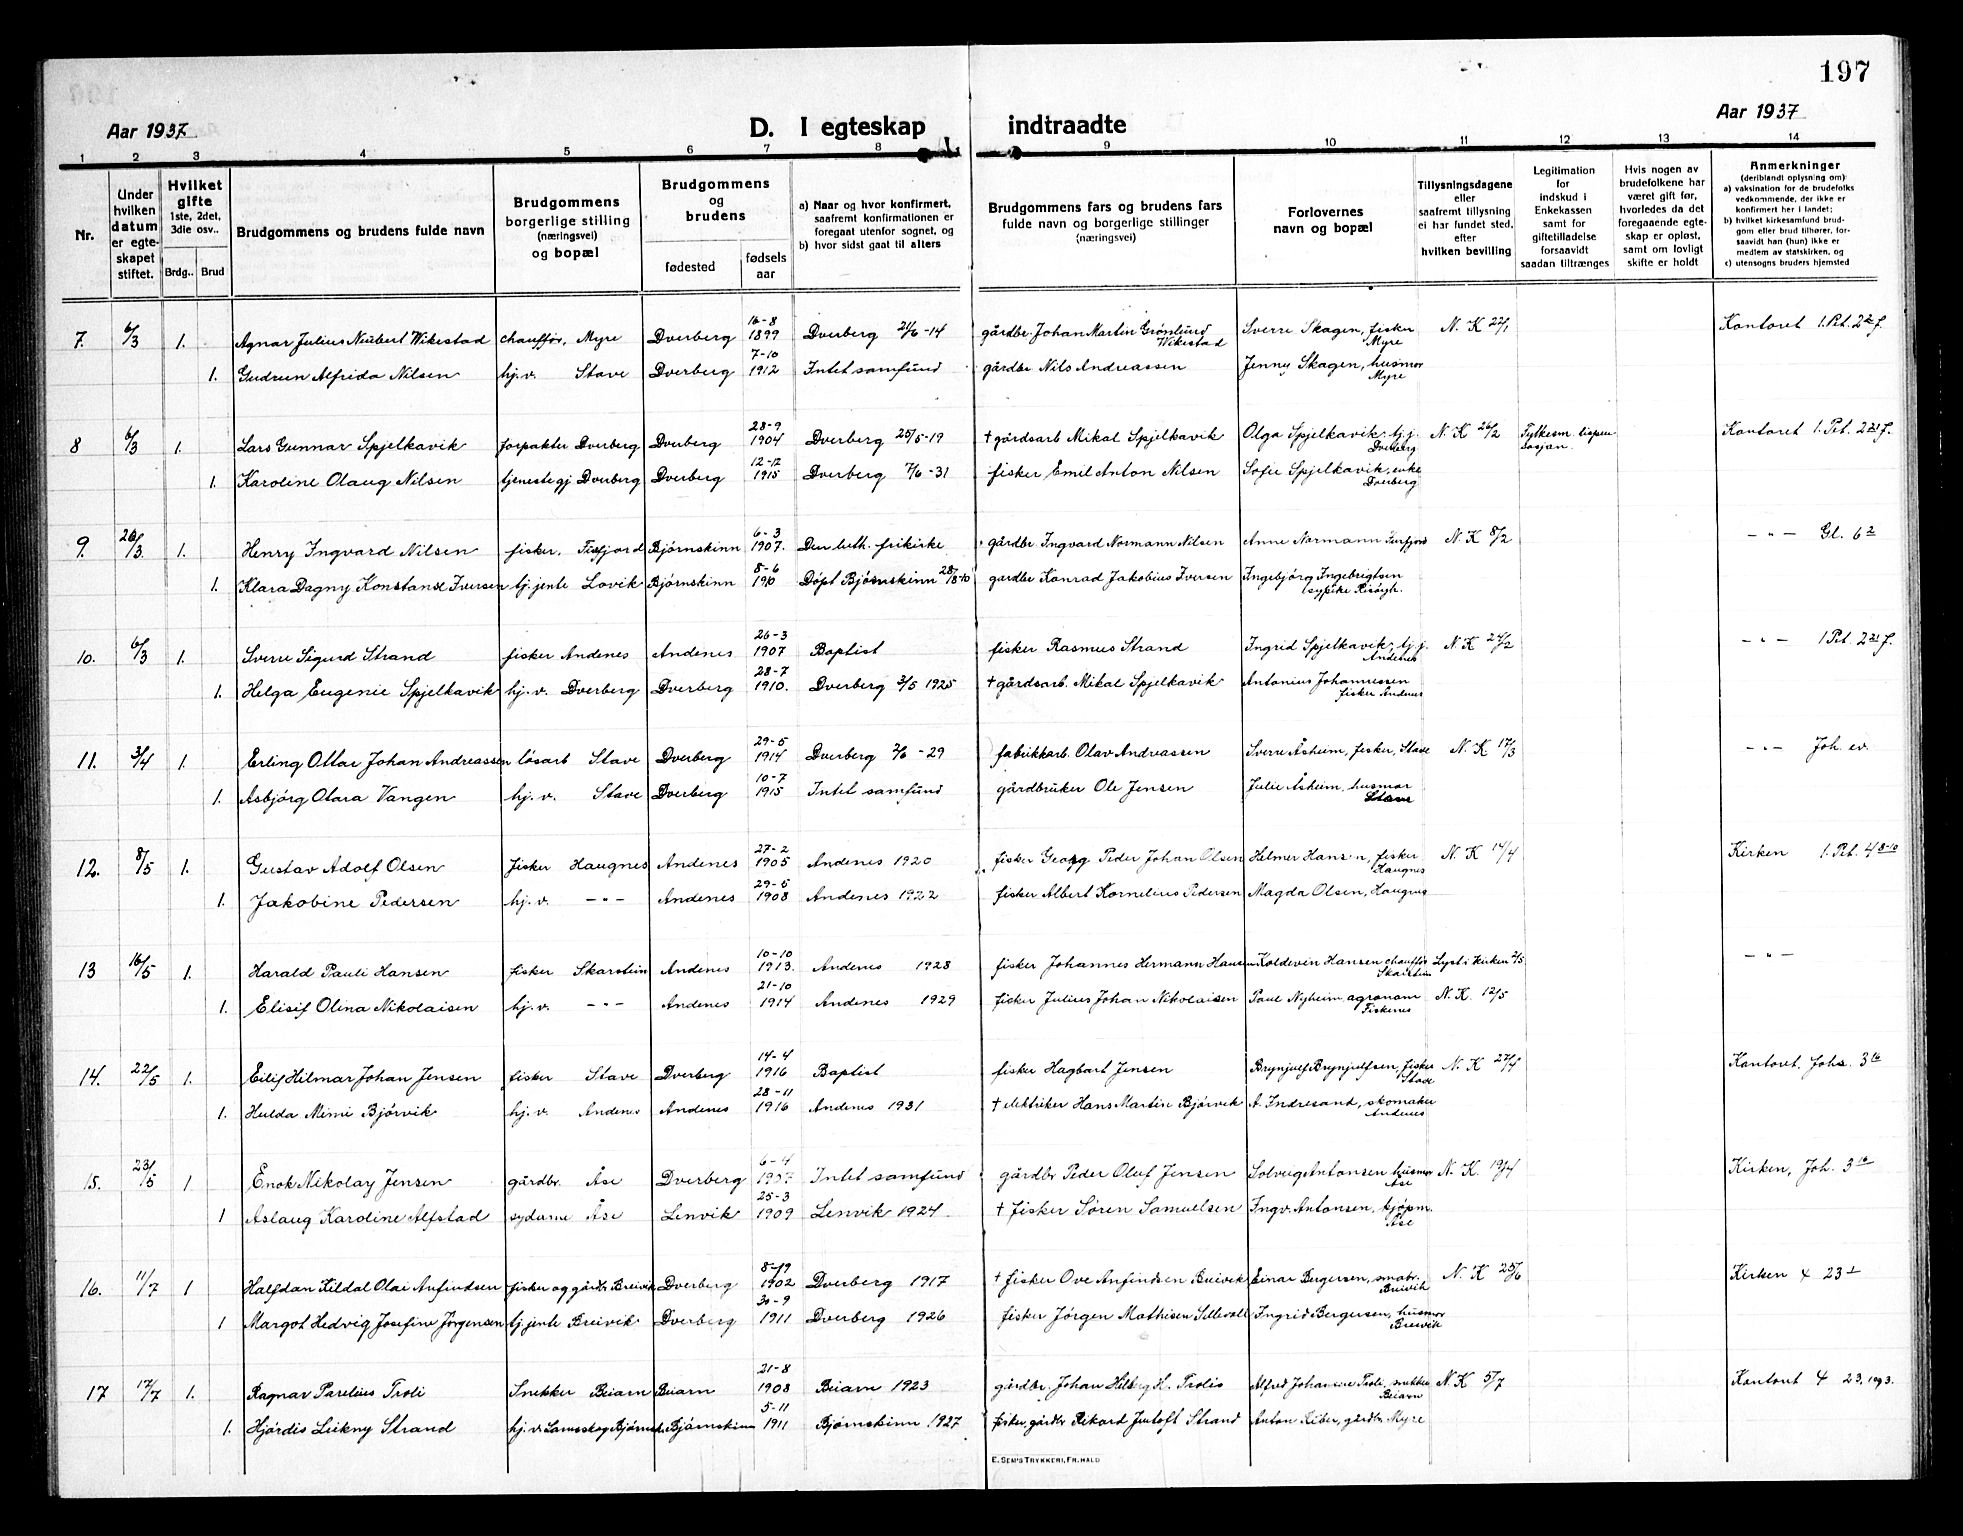 197
Aar 1937
D. I egteskap indtraadte
Aar 1937
1 2 3 4 5 6 7 8 9 10 11 12 13 14
Nr.
Under hvilken datum er egte-skapet stiftet.
Hvilket gifte 1ste, 2det, 3die osv..
Brdg.. Brud
Brudgommens og brudens fulde navn
Brudgommens borgerlige stilling (næringsvei) og bopæl
Brudgommens og brudens
fødested
fødsels aar
a) Naar og hvor konfirmert, saafremt konfirmationen er foregaat utenfor sognet, og
b) hvor sidst gaat til alters
Brudgommens fars og brudens fars fulde navn og borgerlige stillinger (næringsvei)
Forlovernes navn og bopæl
Tillysningsdagene eller saafremt tillysning ei har fundet sted, efter hvilken bevilling
Legitimation for indskud i Enkekassen samt for giftetilladelse forsaavidt saadan tiltrænges
Hvis nogen av brudefolkene har været gift før, hvorledes da det foregaaende egte-skap er opløst, samt om lovligt skifte er holdt
Anmerkninger
(deriblandt oplysning om)
a) vaksination for de brudefolks vedkommende, der ikke er konfirmert her i landet;
b) hvilket kirkesamfund brud-gom eller brud tilhører, for-saavidt han (hun) ikke er medlem av statskirken, og
c) utensogns bruders hjemsted
7. 6/3 1. Agnar Julius Neubert Wikestad chauffør, Myre Dverberg 16-8 1899 Dverberg 21/6-14 gårdbr. Johan Martin Grønlund Wikestad Sverre Skagen, fisker Myre N. K 22/1 Kontoret 1. Pet. 2
1. Gudrun Alfrida Nilsen hj.v. Stave Dverberg 7-10 1912 Intet samfund gårdbr Nils Andreassen Jenny Skagen, husmor Myre
8 6/3 1. Lars Gunnar Spjelkavik forpakter Dverberg Dverberg 28-9 1904 Dverberg 25/5-19 † gårdsarb Mikal Spjelkavik Olga Spjelkavik, tj.j. Dverberg N. K 26/2 Fylkesm. Kontoret 1. Pet. 2 21 f.
1. Karoline Olaug Nilsen tjenestegj Dverberg Dverberg 12-12 1915 Dverberg 7/6-31 fisker Emil Anton Nilsen Sofie Spjelkavik, enke Dverberg
9. 26/3 1. Henry Ingvard Nilsen fisker, Bjørnskinn 6-3 1907. Den luth. frikirke gårdbr Ingvard Normann Nilsen Anne Normann N. K 8/2 -"- Gl. 6 2
1. Klara Dagny Konstanse Iversen tj.jente Lovik Bjørnskinn 8-6 1910 Døpt Bjørnskinn 28/8-10 gårdbr Konrad Jakobius Iversen Ingebjørg Ingebrigtsen sypike Risøyh.
10. 6/3 1. Sverre Sigurd Strand fisker Andenes Andenes 26-3 1907 Baptist fisker Rasmus Strand Ingrid Spjelkavik, tj.j. Andenes N. K 24/2 -"- 1 Pet. 2 21 f.
1. Helga Eugenie Spjelkavik hj.v. Dverberg Dverberg 28-7 1910. Dverberg 3/5 1925 † gårdsarb. Mikal Spjelkavik Antonius Johannessen fisker Andenes
11. 3/4 1. Erling Ottar Johan Andreassen løsarb Stave Dverberg 29-5 1914 Dverberg 2/6-29 fabrikkarb. Olav Andreassen Sverre Åsheim, fisker, Stave N. K 17/3 -"- Joh. ev.
1. Asbjørg Olara Vangen hj.v. Stave Dverberg 10-7 1915 Intet samfund gårdbruker Ole Jensen Julie Åsheim, husmor Stave
12. 8/5 1. Gustav Adolf Olsen fisker Haugnes Andenes 27-2 1905 Andenes 1920 fisker Georg Peder Johan Olsen Helmer Hansen, fisker Haugnes N. K 14/4 Kirken 1. Pet. 4 8-10
1. Jakobine Pedersen hj.v. -"- Andenes 29-5 1908 Andenes 1922 fisker Albert Kornelius Pedersen Magda Olsen, Haugnes
13 16/5 1. Harald Pauli Hansen fisker Skarstein Andenes 10-10 1913. Andenes 1928 fisker Johannes Hermann Hansen Koldevin Hansen chauffør Skarstein Lyst i kirken 2/5 -"-
1. Elisif Olina Nikolaisen hj.v. -"- Andenes 21-10 1914 Andenes 1929 fisker Julius Johan Nikolaisen Paul Nyheim, agronom Fiskenes N. K. 12/5
14. 22/5 1. Eilif Hilmar Johan Jensen fisker Stave Dverberg 14-4 1916 Baptist fisker Hagbart Jensen Brynjulf Brynjulfsen, fisker Stave N. K 27/4 Kontoret, Johs. 3 16
1. Hulda Mimi Bjørvik hj.v. Andenes Andenes 28-11 1916 Andenes 1931 † elektriker Hans Martin Bjørvik A. Indresand, skomaker Andenes
15. 23/5 1 Enok Nikolay Jensen gårdbr. Åse Dverberg 6-4 1907 Intet samfund gårdbr Peder Oluf Jensen Solveig Antonsen husmor Åse N. K. 19/4 Kirken, Joh. 3 16
1 Aslaug Karoline Alfstad sydame Åse Lenvik 25-3 1909 Lenvik 1924 † fisker Søren Samuelsen Ingv. Antonsen, kjøpm. Åse
16. 11/7 1 Halfdan Kildal Olai Anfindsen fisker og gårdbr Breivik Dverberg 8-19 1902 Dverberg 1917 † fisker Ove Anfindsen Breivik Einar Bergersen, småbr. Breivik N. K 25/6 Kirken 4 23
1 Margot Hedvig Josefine Jørgensen tj.jente Breivik Dverberg 30-9 1911 Dverberg 1926 fisker Jørgen Mathisen Sellevoll Ingrid Bergersen, husmor Breivik
17 17/7 1. Ragnar Parelius Troli Snekker Beiarn Beiarn 21-8 1908 Beiarn 1923 gårdbr. Johan H. Trolis Alfred Johansen Troli, snekker Beiarn N. K 5/7 Kontoret 4 23,
1. Hjørdis Lukny Strand hj.v. Bjørnskinn 5-11 1911 Bjørnskinn 1927 fisker, gårdbr Rikard Justoft Strand Anton Riber, gårdbr Myre
E. SEM'S TRYKKERI, FR.HALD